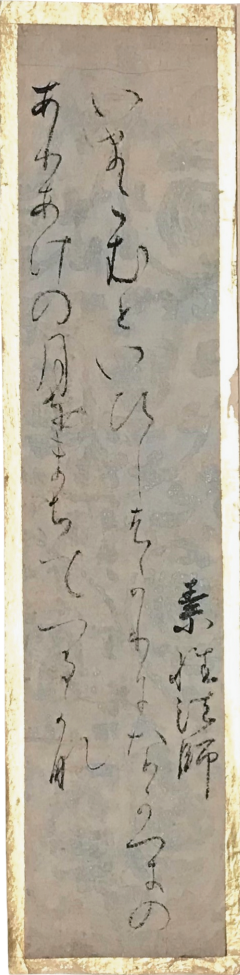 素性法師
いまこむといひしはかりになかつきの
ありあけの月をまちてつるかな